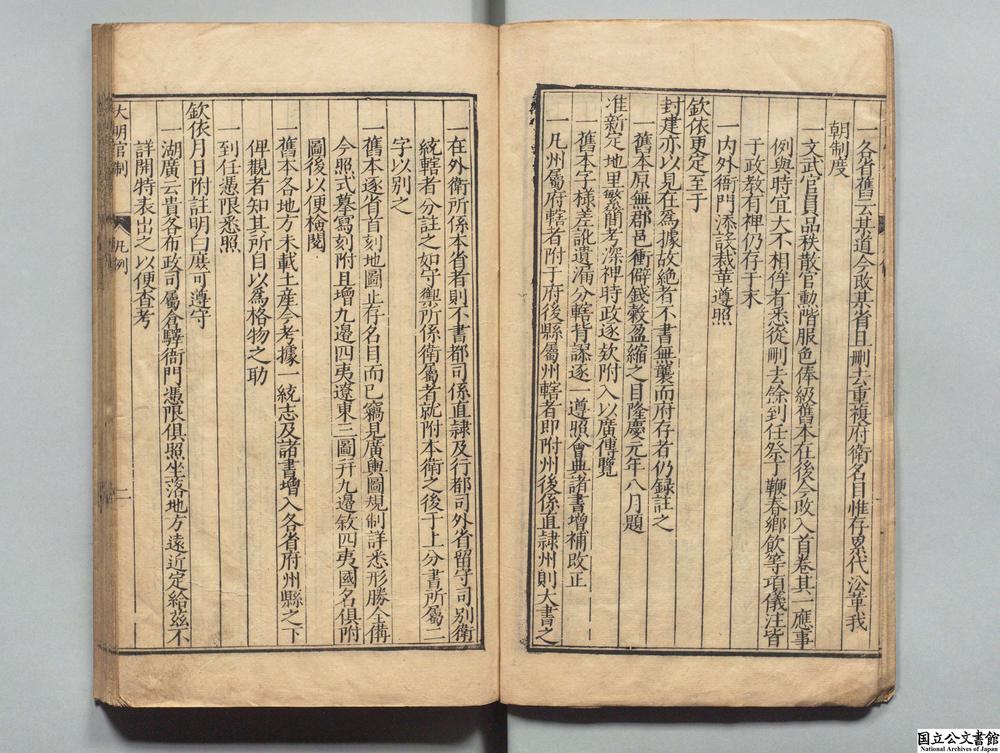 一各省舊云某道今改某省且刪去重複府衛名目惟存累代沿革我
朝制度
一文武官員品秩散官勳階服色俸級舊本在後今改入首卷其一應事
例與時宜大不相侔者悉從刪去餘到任祭丁鞭春鄉飲等項儀注皆
于政教有裨仍存于末
一内外衙門添設裁革遵照
欽依更定至于
封建亦以見在爲據故絶者不書無襲而府存者仍録註之
一舊本原無郡邑衝僻錢穀盈縮之目隆慶元年八月題
准新定地里繁簡考深禆時政逐欵附入以廣傳覽
一舊本字樣差訛遺漏分轄背謬逐一遵照會典諸書增補改正
一凡州屬府轄者附于府後縣屬州轄者即附州後係直隷州則大書之
一在外衛所係本省者則不書都司係直隷及行都司外省留守司别衛
統轄者分註之如守禦所係衛屬者就附本衛之後于上分書所屬二
字以别之
一舊本逐省首刻地圖止存名目而已竊見廣輿圖規制詳悉形勝全備
今照式摹寫刻附且增九邉四夷遼東三圖幷九邉敘四夷國名俱附
圖後以便檢閲
一舊本各地方未載土産今考據一統志及諸書增入各省府州縣之下
俾觀者知其所自以爲格物之助
一到任憑限悉照
欽依月日附註明白庶可遵守
一湖廣云貴各布政司屬倉驛衙門憑限俱照坐落地方遠近定給茲不
詳開特表出之以便查考
大明官制
凡例
二
国立公文書館
National Archives of Japan